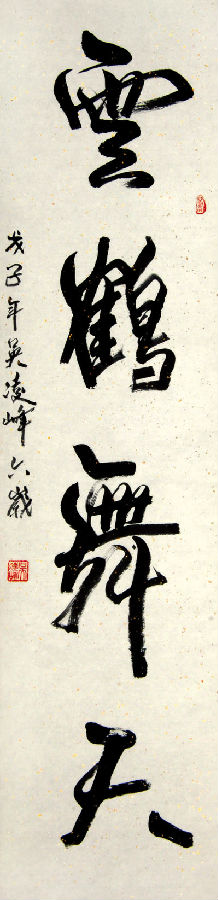 雲鶴舞天
戊子年吴凌峰六歲